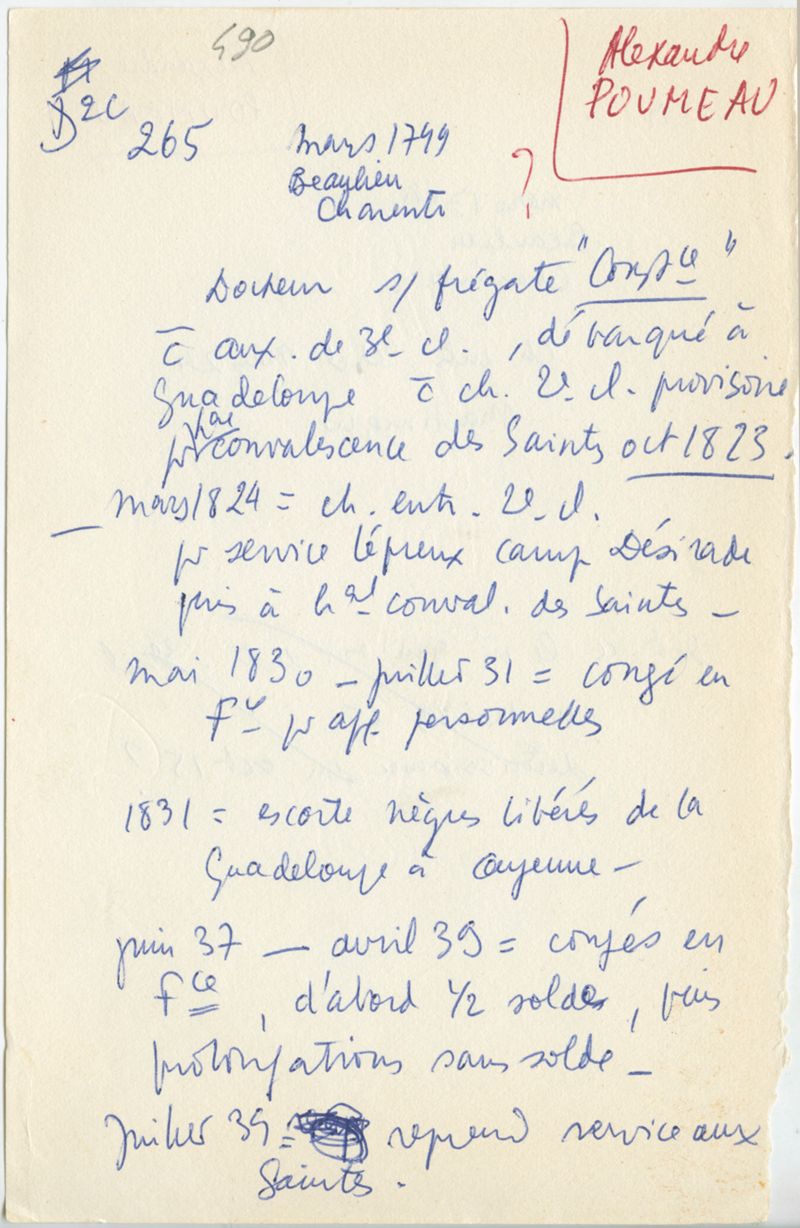 490
Alexandre
POUMEAU
D2C
265
mars 1799
Beaulieu
Charente
?
Docteur s/ frégate "Constce"
c̄ aux. de 3e cl., débarqué à
Guadeloupe c̄ ch. 2e cl. provisoire
pr convalescence des Saintes oct 1823.
— mars 1824 = ch. entr. 2e cl.
pr service lépreux camp Désirade
puis à hal conval. des Saintes —
mai 1830 — juillet 31 = congé en
Fce pr aff. personnelles
1831 = escorte nègres libérés de la
Guadeloupe à Cayenne —
juin 37 — avril 39 = congés en
Fce, d'abord 1/2 solde, puis
prolongations sans solde —
Juillet 39 = reprend service aux
Saintes.